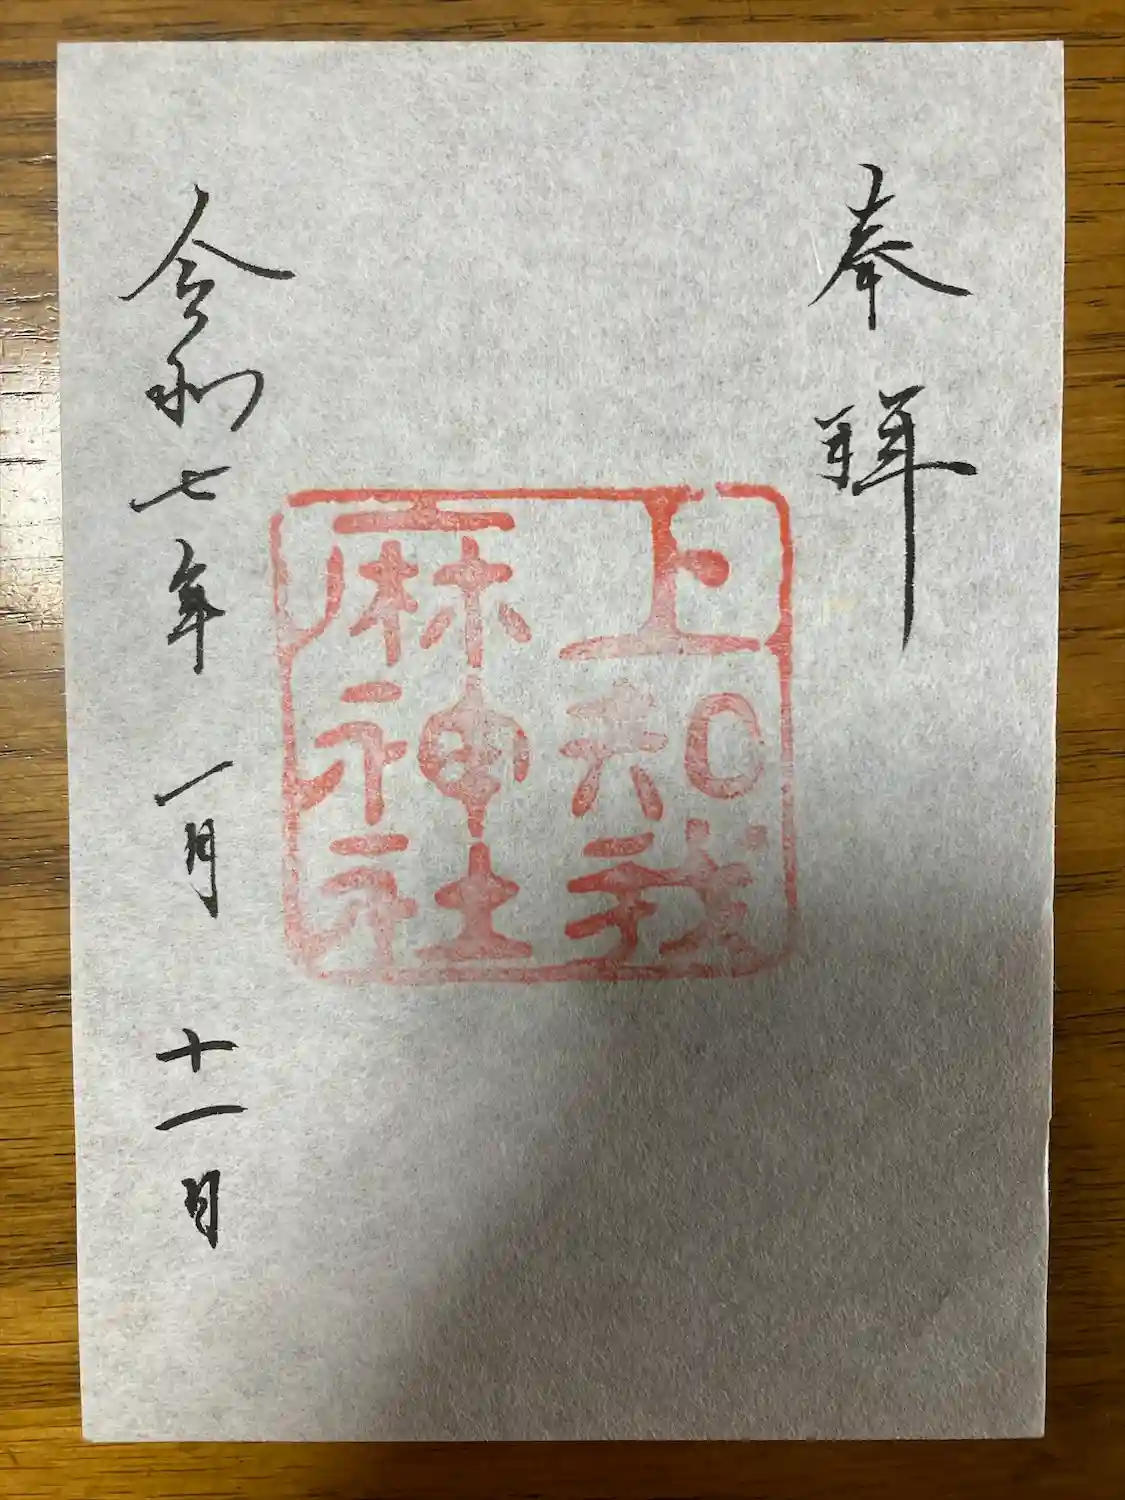 奉拜
上知我
麻神社
令和七年 一月 十一日